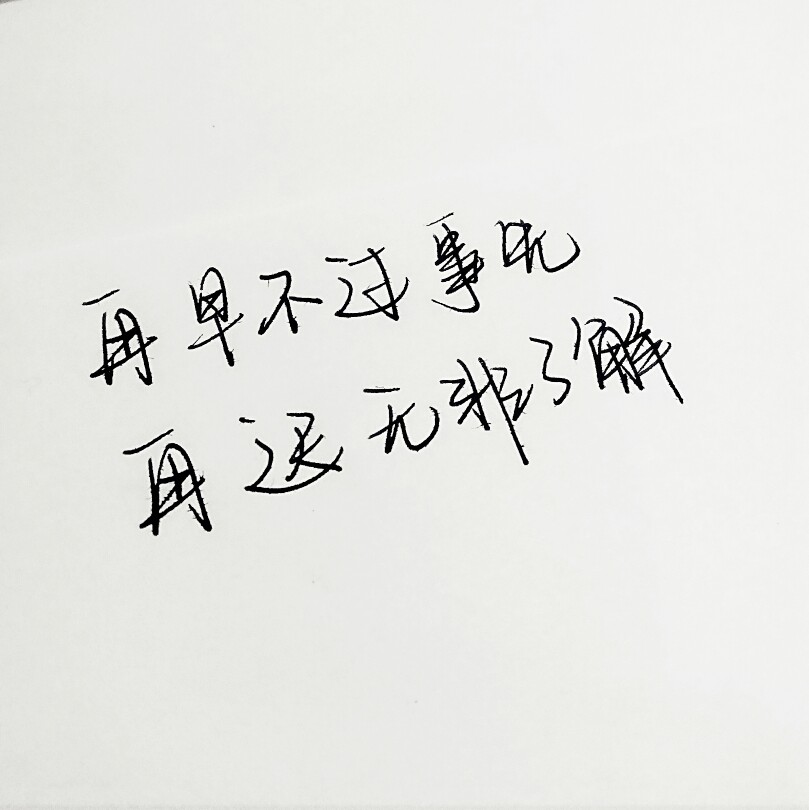 再早不过事
再迟无邪了解